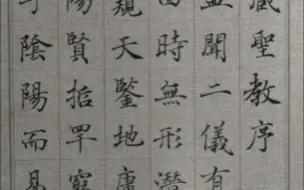 藏聖教序
蓋聞二儀有
四時無形潛
窺天鑒地庸
陽賢哲罕窮
乎陰陽而易